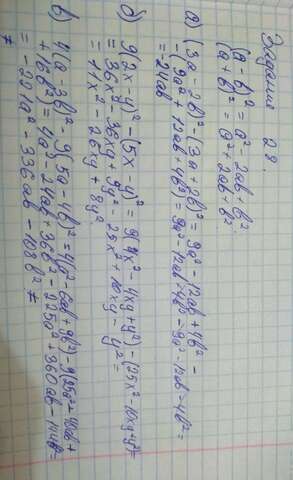 Задание 28.
(a-b)² = a² - 2ab + b²
(a+b)² = a² + 2ab + b²
а) (3a-2b)² - (3a+2b)² = 9a² - 12ab + 4b² -
- (9a² + 12ab + 4b²) = 9a² - 12ab + 4b² - 9a² - 12ab - 4b² =
= 24ab
б) 9(2x-y)² - (5x-y)² = 9(4x² - 4xy + y²) - (25x² - 10xy + y²) =
= 36x² - 36xy + 9y² - 25x² + 10xy - y² =
= 11x² - 26xy + 8y²
в) 4(a-3b)² - 9(5a-4b)² = 4(a² - 6ab + 9b²) - 9(25a² - 40ab +
+ 16b²) = 4a² - 24ab + 36b² - 225a² + 360ab - 144b² =
= -221a² - 336ab - 108b² ≠
≠